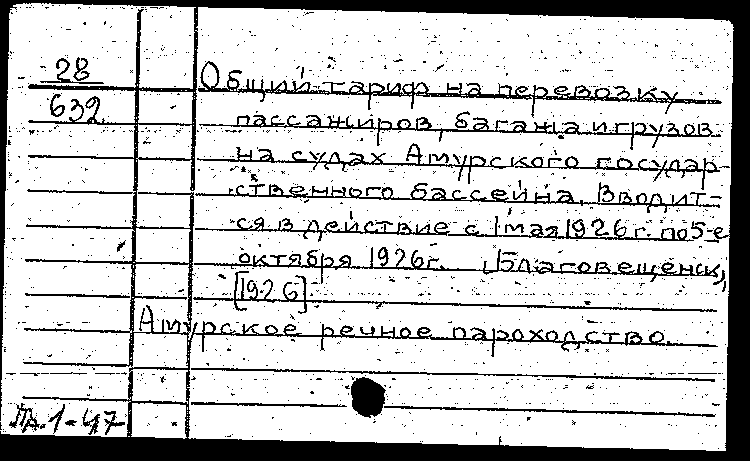 28
632
Общий тариф на перевозку
пассажиров, багажа и грузов
на судах Амурского государ-
ственного бассейна. Вводит-
ся в действие с 1 мая 1926 г. по 5-е
октября 1926 г. Благовещенск,
[1926]
Амурское речное пароходство.
1-47